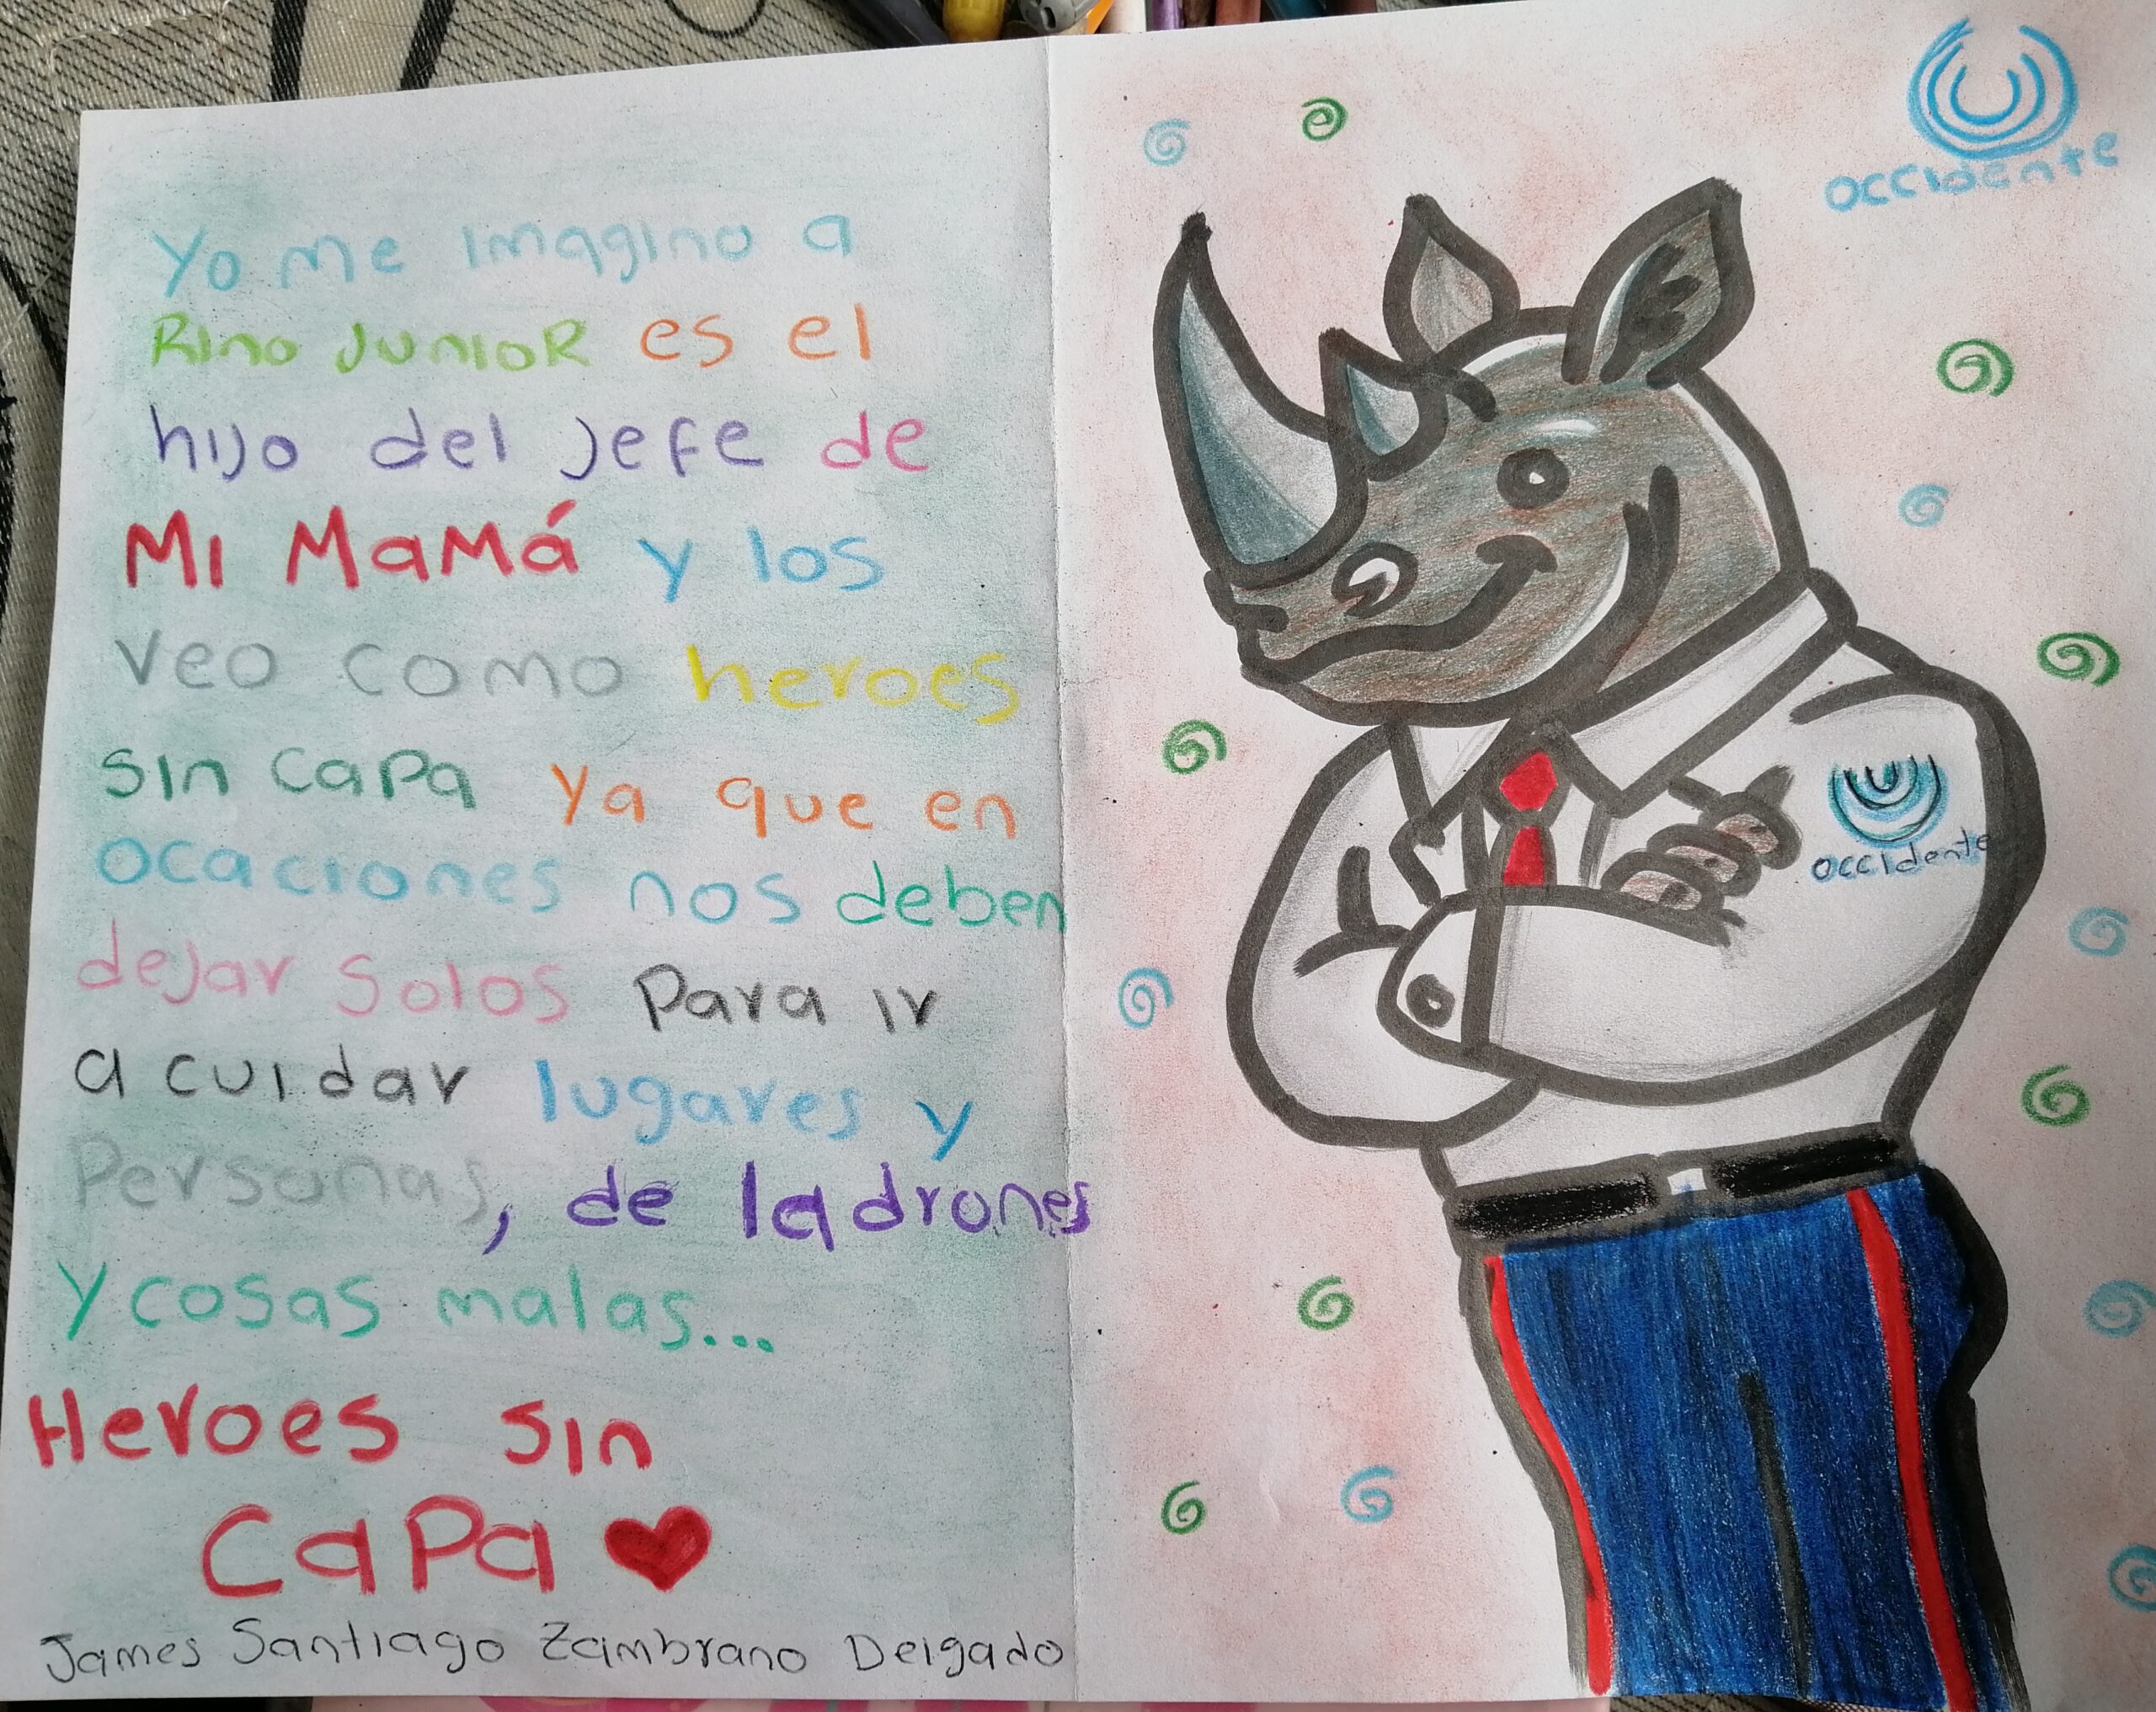 Yo me imagino a
Rino Junior es el
hijo del jefe de
Mi Mamá y los
veo como heroes
sin capa ya que en
ocaciones nos deben
dejar solos para ir
a cuidar lugares y
Personas, de ladrones
y cosas malas...
Heroes sin
Capa
James Santiago Zambrano Delgado
occidente
occidente